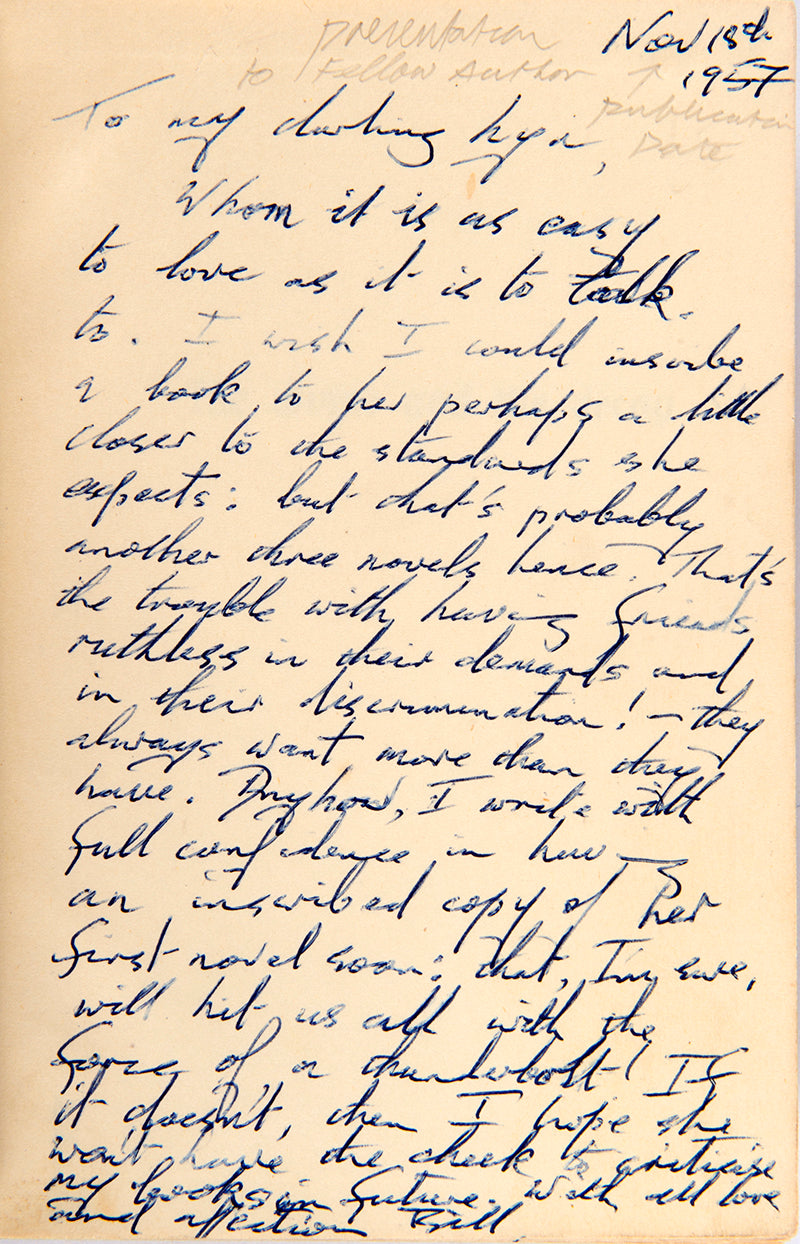 presentation
to Fellow Author ↑
publication
Date
Nov 18th
1957
To my darling
Whom it is as easy
to love as it is to talk
to. I wish I could inscribe
a book to her perhaps a little
closer to the standards she
expects: but that's probably
another three novels hence. That's
the trouble with having friends
ruthless in their demands and
in their discrimination! — they
always want more than they
have. Anyhow, I write with
full confidence in having
an inscribed copy of her
first novel soon: that, I'm sure,
will hit us all with the
force of a thunderbolt! If
it doesn't, then I hope she
won't have the cheek to criticise
my books in future. With all love
and affection Bill.